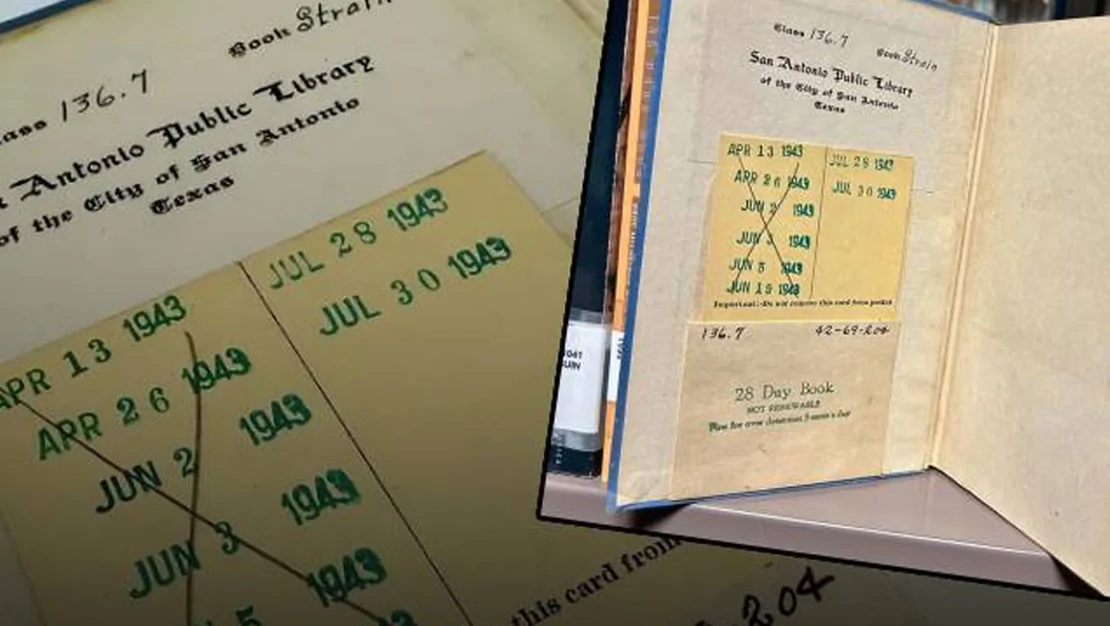 Book Strain
Class 136.7
Antonio Public Library
of the City of San Antonio
Texas
JUL 28 1943
JUL 30 1943
APR 13 1943
APR 26 1943
JUN 2 1943
JUN 3 1943
5 1943
this card from
204
Class 136.7 Book Strain
San Antonio Public Library
of the City of San Antonio
Texas
APR 13 1943
APR 26 1943
JUN 2 1943
JUN 3 1943
JUN 5 1943
JUN 19 1943
JUL 28 1943
JUL 30 1943
Important:-Do not remove this card from pocket
136.7 42-69-204
28 Day Book
NOT RENEWABLE
for over detention a day